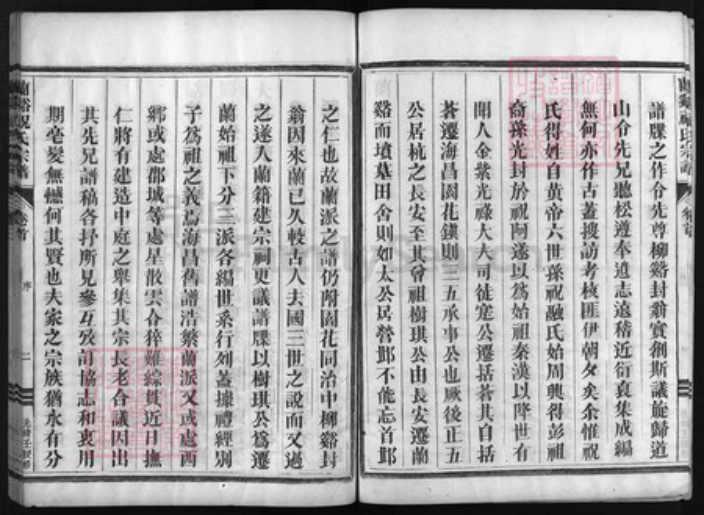 譜牒之作合先尊柳谿封翁實剏斯議旋歸道
山令先兄聽松遵奉遺志遠稽近衍裒集成編
無何亦作古蓋搜訪考核匪伊朝夕矣余惟祝
氏得姓自黄帝六世孫祝融氏始周興得彭祖
裔孫光封於祝阿遂以爲始祖秦漢以降世有
聞人金紫光祿大夫司徒寔公遷括蒼其自括
蒼遷海昌園花鎮則三五承事公也厥後正五
公居杭之長安至其曾祖樹琪公由長安遷蘭
谿而墳墓田舍則如太公居營邱不能忘首邱
之仁也故蘭派之譜仍附園花同治中柳谿封
翁因來蘭已久較古人去國三世之說而又過
之遂入蘭籍建宗祠更議譜牒以樹琪公爲遷
蘭始祖下分三派各編世系行列蓋據禮經別
子爲祖之義焉海昌舊譜浩繁蘭派又或處西
鄉或處郡城等處星散雲合猝難綜貫近日撫
仁將有建造中庭之舉集其宗長老合議因出
其先兄譜稿各抒所見參互攷訂協志和衷用
期毫髮無憾何其賢也夫家之宗族猶水有分
蘭谿祝氏宗譜
卷首
序
二